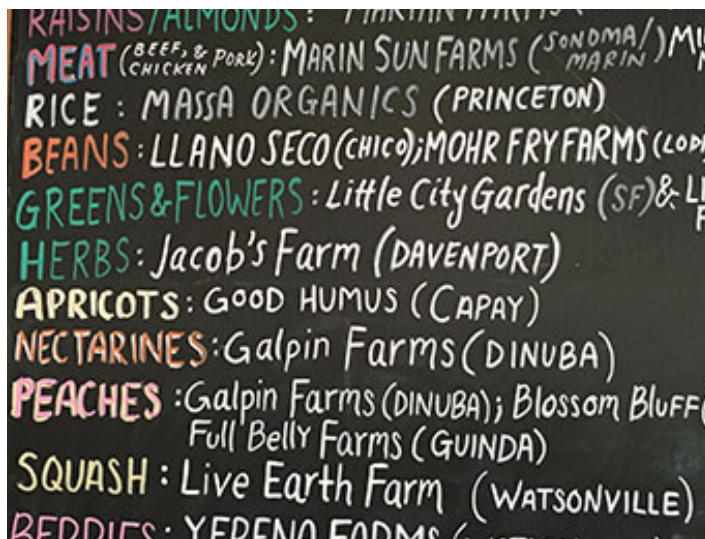 RAISINS/ALMONDS: MARIAN FARMS
MEAT (BEEF, & CHICKEN PORK): MARIN SUN FARMS (SONOMA/MARIN)
RICE: MASSA ORGANICS (PRINCETON)
BEANS: LLANO SECO (CHICO); MOHR FRY FARMS (LODI
GREENS & FLOWERS: Little City Gardens (SF) &
HERBS: Jacob's Farm (DAVENPORT)
APRICOTS: GOOD HUMUS (CAPAY)
NECTARINES: Galpin Farms (DINUBA)
PEACHES: Galpin Farms (DINUBA); Blossom Bluff (
Full Belly Farms (GUINDA)
SQUASH: Live Earth Farm (WATSONVILLE)
BERRIES: YERENA FARMS